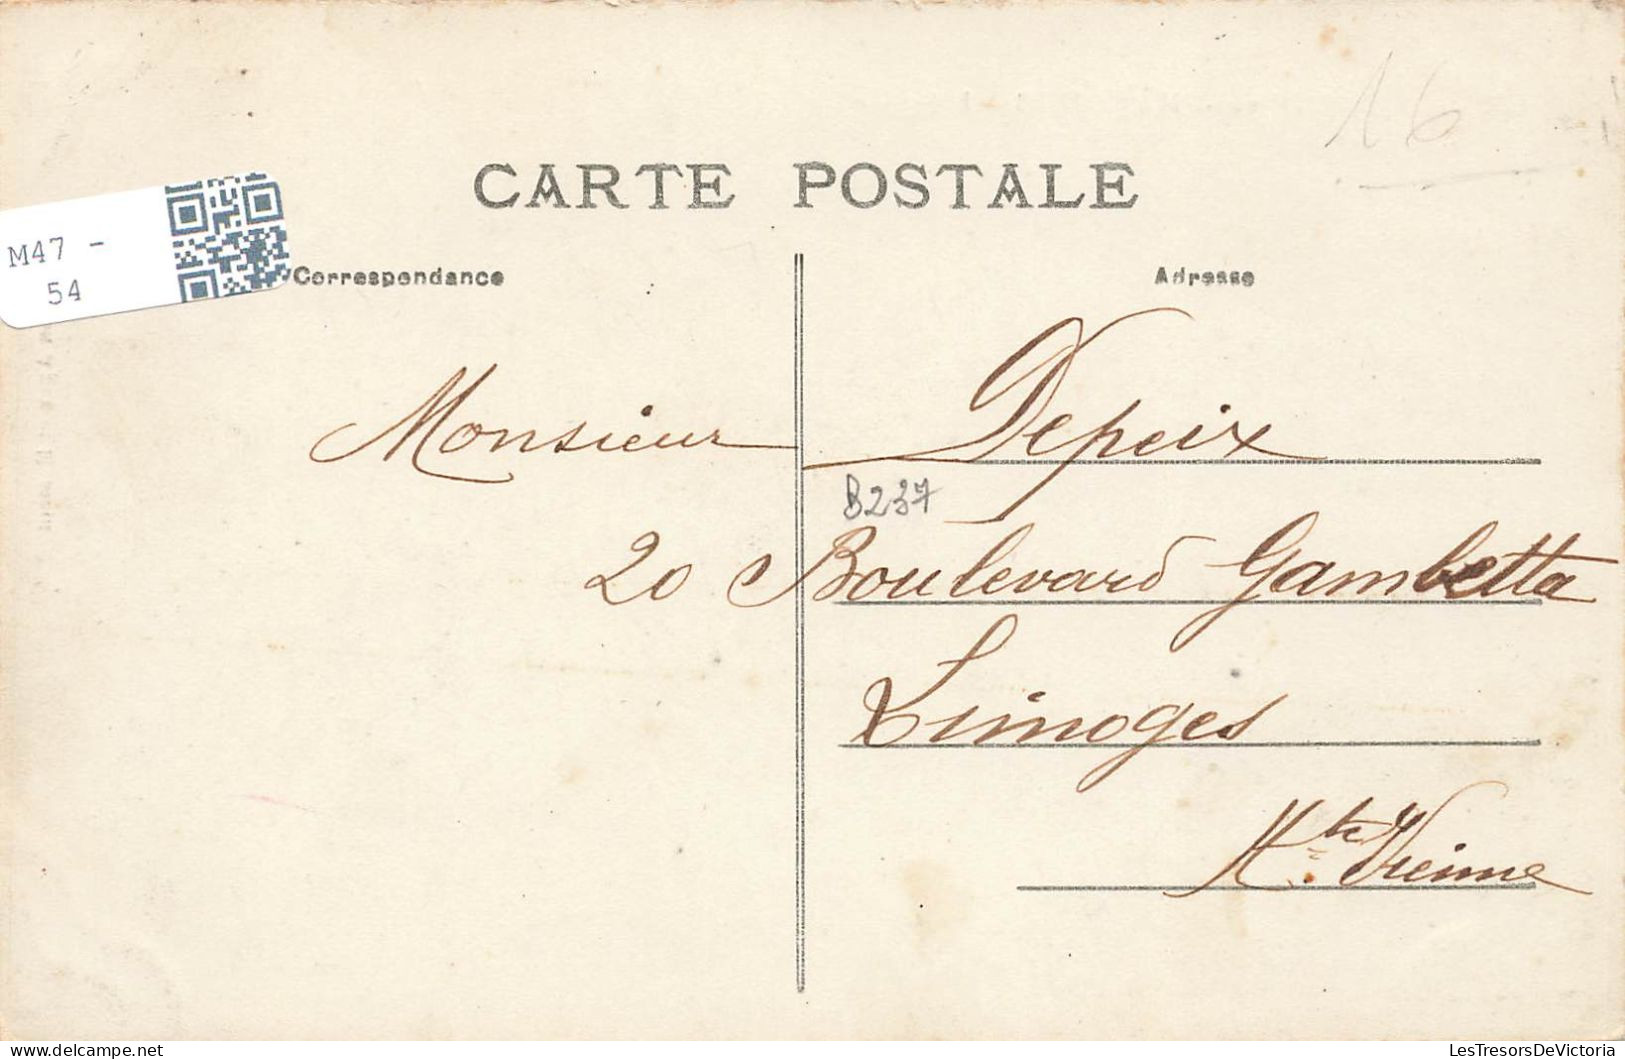 16
CARTE POSTALE
M47 -
54
Correspondance
Adresse
Monsieur Depeix
B237
20 Boulevard Gambetta
Limoges
Hte Vienne
delcampe.net
LesTresorsDeVictoria